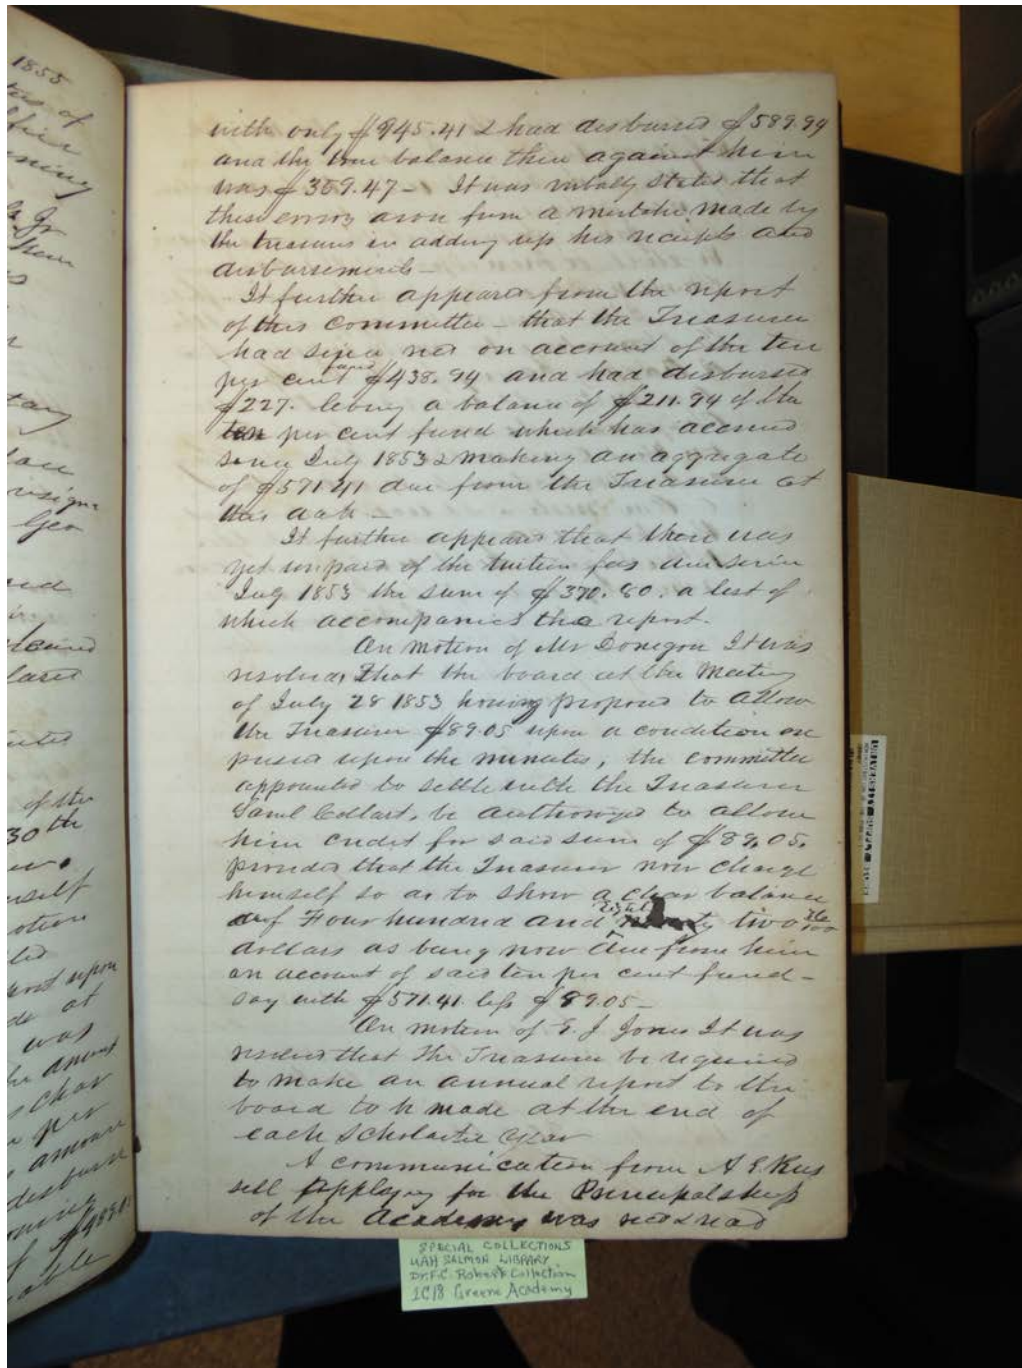 1855
of
of
with only $945.41 & had disbursed $589.94
and the true balance then against him
was $359.47 — It was verbally stated that
these errors arose from a mistake made by
the treasurer in adding up his receipts and
disbursements —
It further appeared from the report
of this committee — that the Treasurer
had since recd on account of the ten
per cent fund $438.94 and had disbursed
$227. leaving a balance of $211.94 of the
ten per cent fund which has accrued
since July 1853 & making an aggregate
of $571.41 due from the Treasurer at
this date —
It further appears that there was
yet unpaid of the tuition fees due since
July 1853 the sum of $370.80. a list of
which accompanies the report.
On motion of Mr Donegan It was
resolved, that the board at the meeting
of July 28 1853 having proposed to allow
the Treasurer $89.05 upon a condition ex
pressed upon the minutes, the committee
appointed to settle with the Treasurer
Saml Coltart, be authorized to allow
him credit for said sum of $89.05.
provided that the Treasurer now charge
himself so as to show a clear balance
of Four hundred and eighty two 36/100
dollars as being now due from him
on account of said ten per cent fund —
say with $571.41 less $89.05 —
On motion of E. J. Jones It was
resolved that the Treasurer be required
to make an annual report to the
board to be made at the end of
each scholastic year
A communication from A E. Rus
sell applying for the Principalship
of the Academy was recd & read
of the
30th
upon
at
was
amount
per
amount
SPECIAL COLLECTIONS
UAH SALMON LIBRARY
Dr. F.C. Roberts Collection
1C18 Greene Academy